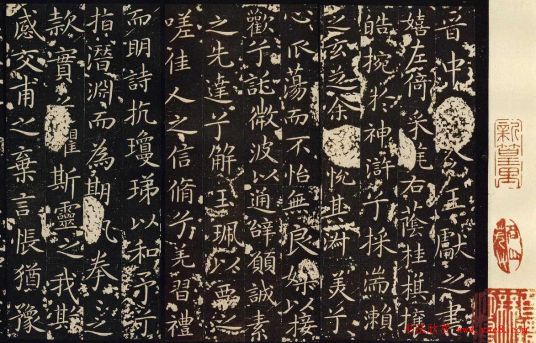 晉中令王獻之書
嬉左倚采旄右蔭桂旗攘
皓捥於神滸兮採湍瀨
之玄芝余悅其淑美兮
心振蕩而不怡無良媒以接
歡兮託微波以通辭願誠素
之先達兮解玉珮以要之
嗟佳人之信脩兮羌習禮
而明詩抗瓊珶以和予兮
指潛淵而為期執拳之
款實兮懼斯靈之我欺
感交甫之棄言悵猶豫